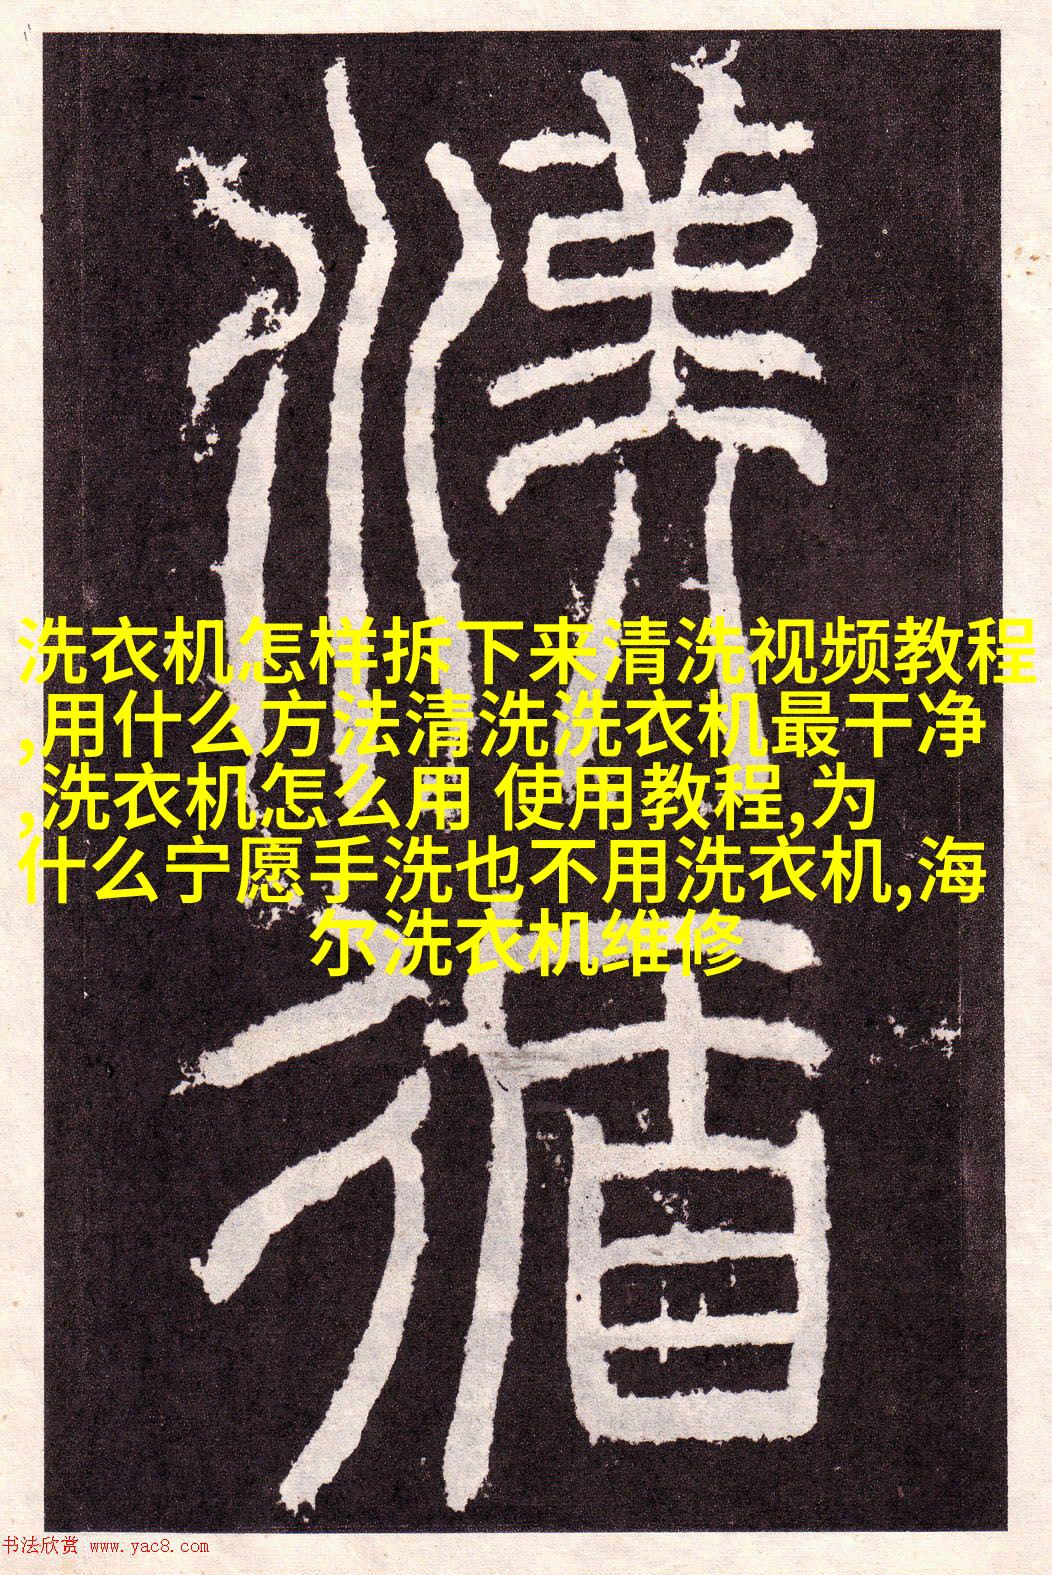 洗衣机怎样拆下来清洗视频教程
,用什么方法清洗洗衣机最干净
,洗衣机怎么用 使用教程,为
什么宁愿手洗也不用洗衣机,海
尔洗衣机维修
书法欣赏 www.yac8.com